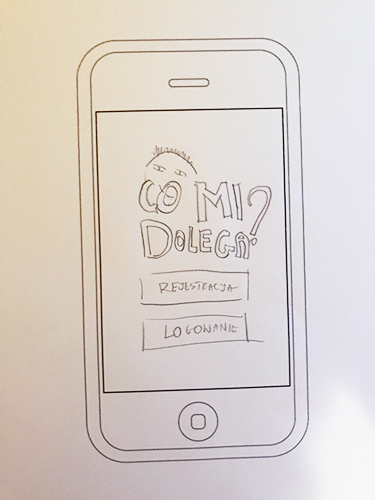 CO MI?
DOLEGA
REJESTRACJA
LOGOWANIE